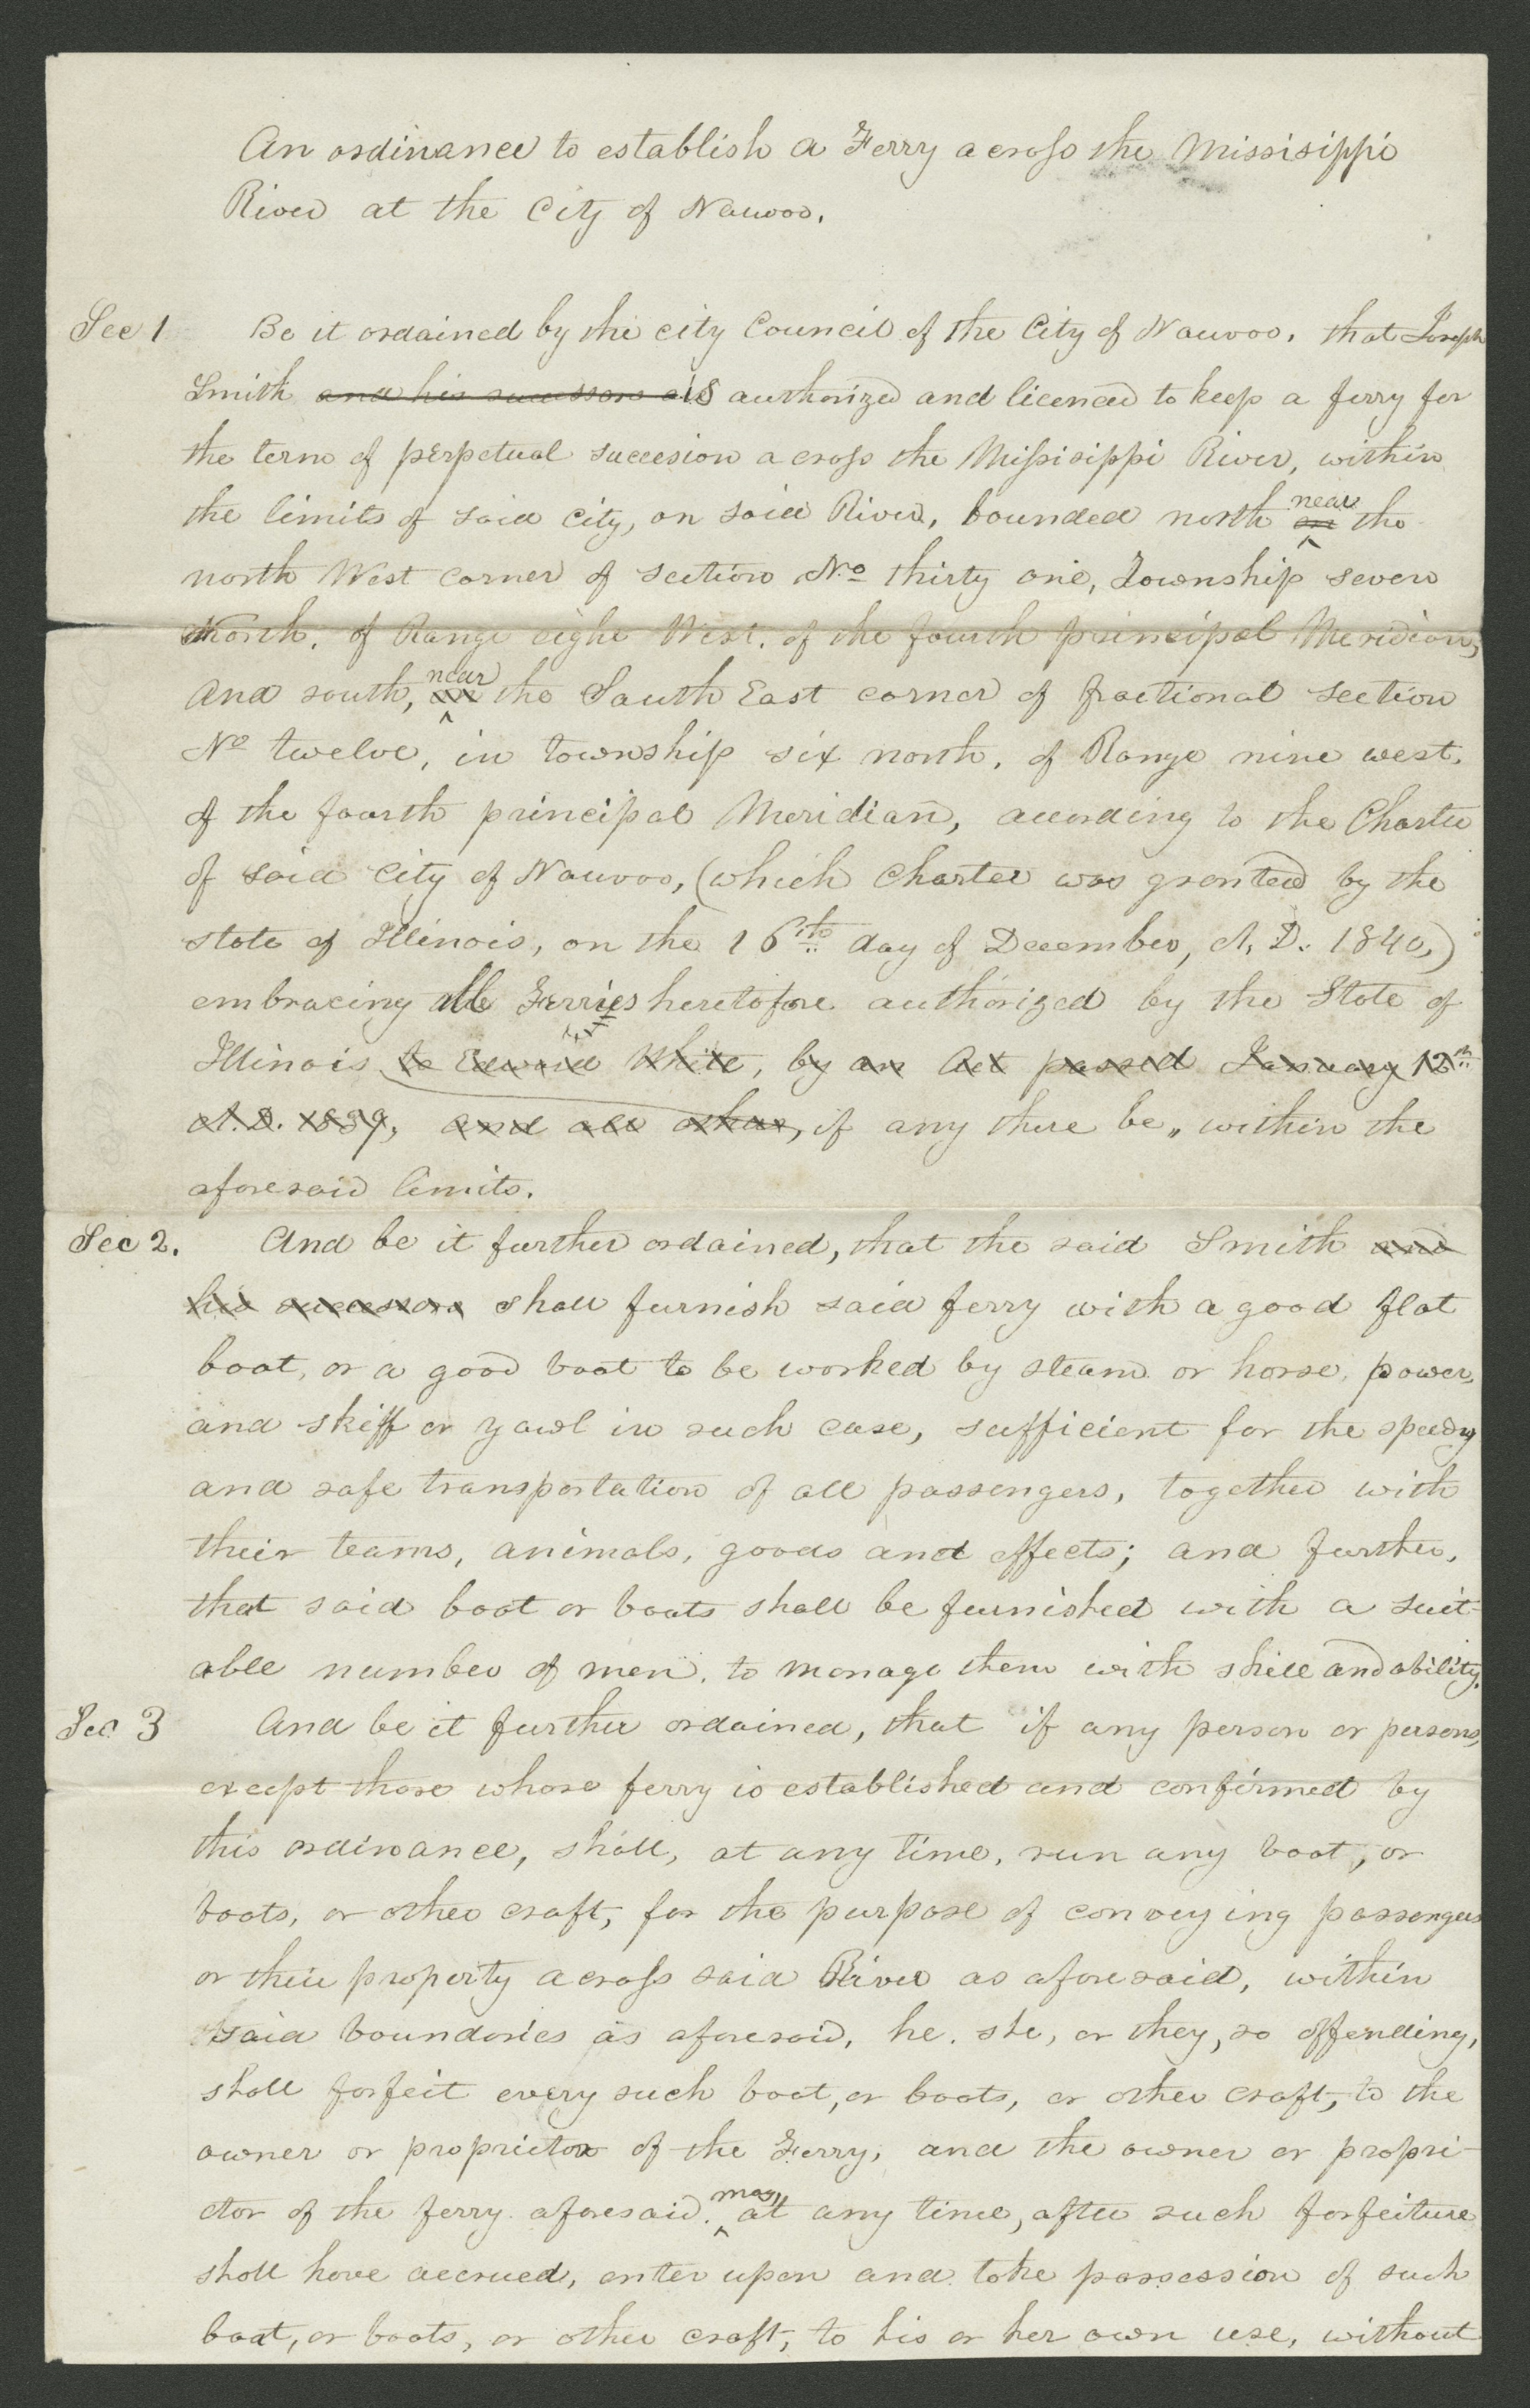 An ordinance to establish a Ferry across the Missisippi
River at the City of Nauvoo.
Sec 1 Be it ordained by the city Council of the City of Nauvoo, that Joseph
Smith and his successors is authorized and licenced to keep a ferry for
the term of perpetual succesion across the Missisippi River, within
the limits of said City, on said River, bounded north on near the
north West corner of section No thirty one, Township seven
North, of Range eight West, of the fourth principal Meridian,
and south, on near the South East corner of fractional section
No twelve, in township six north, of Range nine west,
of the fourth principal Meridian, according to the Charter
of said City of Nauvoo, (which Charter was granted by the
state of Illinois, on the 16th day of December, A, D. 1840,)
embracing all Ferries heretofore authorized by the State of
Illinois to Edward White, by an Act passed January 12th
A.D. 1839, and all others, if any there be, within the
aforesaid limits.
Sec 2. And be it further ordained, that the said Smith and
his successors shall furnish said ferry with a good flat
boat, or a good boat to be worked by steam or horse power,
and skiff or yawl in such case, sufficient for the speedy
and safe transportation of all passengers, together with
their teams, animals, goods and effects; and further,
that said boat or boats shall be furnished with a suit-
able number of men, to manage them with skill and ability.
Sec. 3 And be it further ordained, that if any person or persons,
except those whose ferry is established and confirmed by
this ordinance, shall, at any time, run any boat, or
boats, or other craft, for the purpose of conveying passengers
or their property across said River as aforesaid, within
said boundories as aforesaid, he, she, or they, so offending,
shall forfeit every such boat, or boats, or other craft, to the
owner or proprietor of the Ferry, and the owner or propri-
etor of the ferry aforesaid, may at any time, after such forfeiture
shall have accrued, enter upon and take possession of such
boat, or boats, or other craft, to his or her own use, without